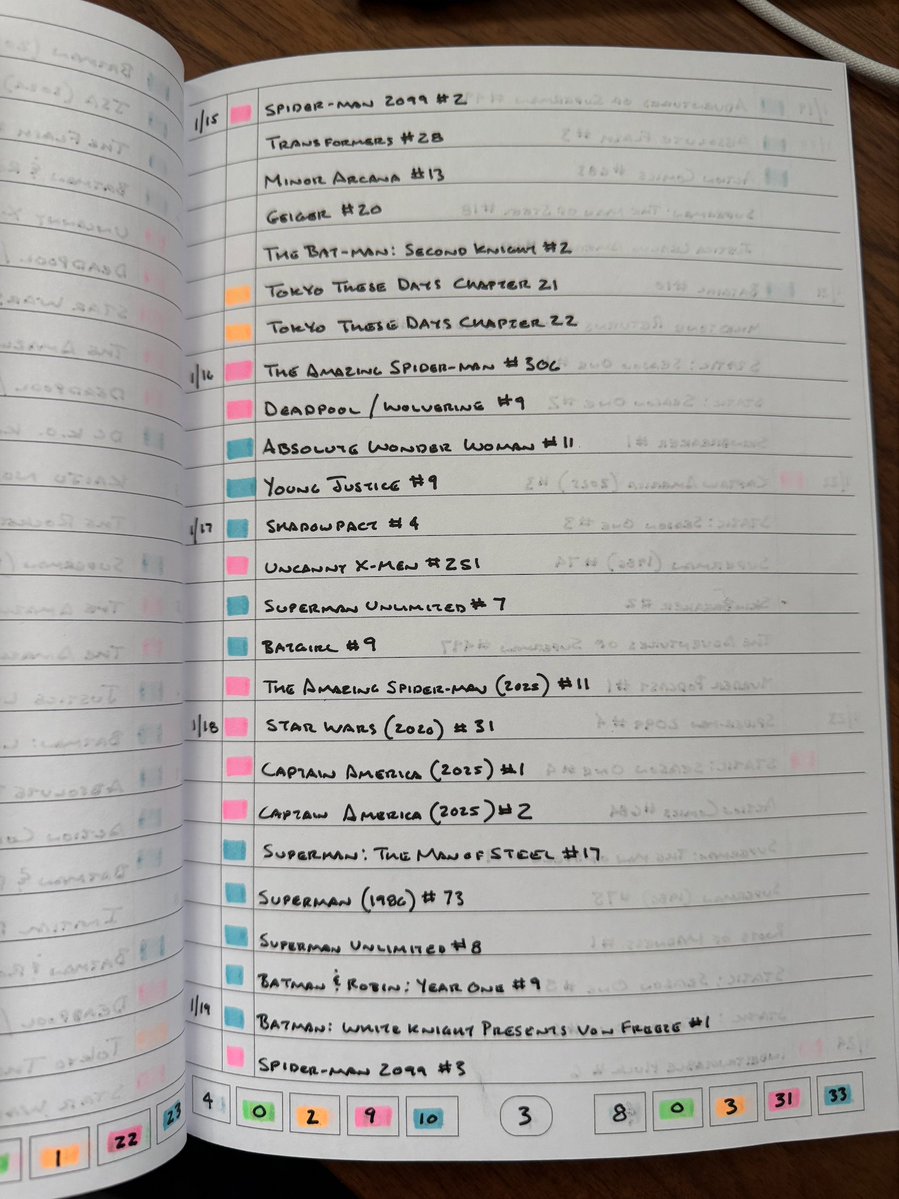 1/15 SPIDER-MAN 2099 #2
TRANSFORMERS #28
MINOR ARCANA #13
GEIGER #20
THE BAT-MAN: SECOND KNIGHT #2
TOKYO THESE DAYS CHAPTER 21
TOKYO THESE DAYS CHAPTER 22
1/16 THE AMAZING SPIDER-MAN #306
DEADPOOL/WOLVERINE #9
ABSOLUTE WONDER WOMAN #11
YOUNG JUSTICE #9
1/17 SHADOWPACT #4
UNCANNY X-MEN #251
SUPERMAN UNLIMITED #7
BATGIRL #9
THE AMAZING SPIDER-MAN (2025) #11
1/18 STAR WARS (2020) #31
CAPTAIN AMERICA (2025) #1
CAPTAIN AMERICA (2025) #2
SUPERMAN: THE MAN OF STEEL #17
SUPERMAN (1986) #73
SUPERMAN UNLIMITED #8
BATMAN & ROBIN: YEAR ONE #9
1/19 BATMAN: WHITE KNIGHT PRESENTS VON FREEZE #1
SPIDER-MAN 2099 #3
1 22 23
4 0 2 9 10 3 8 0 3 31 33